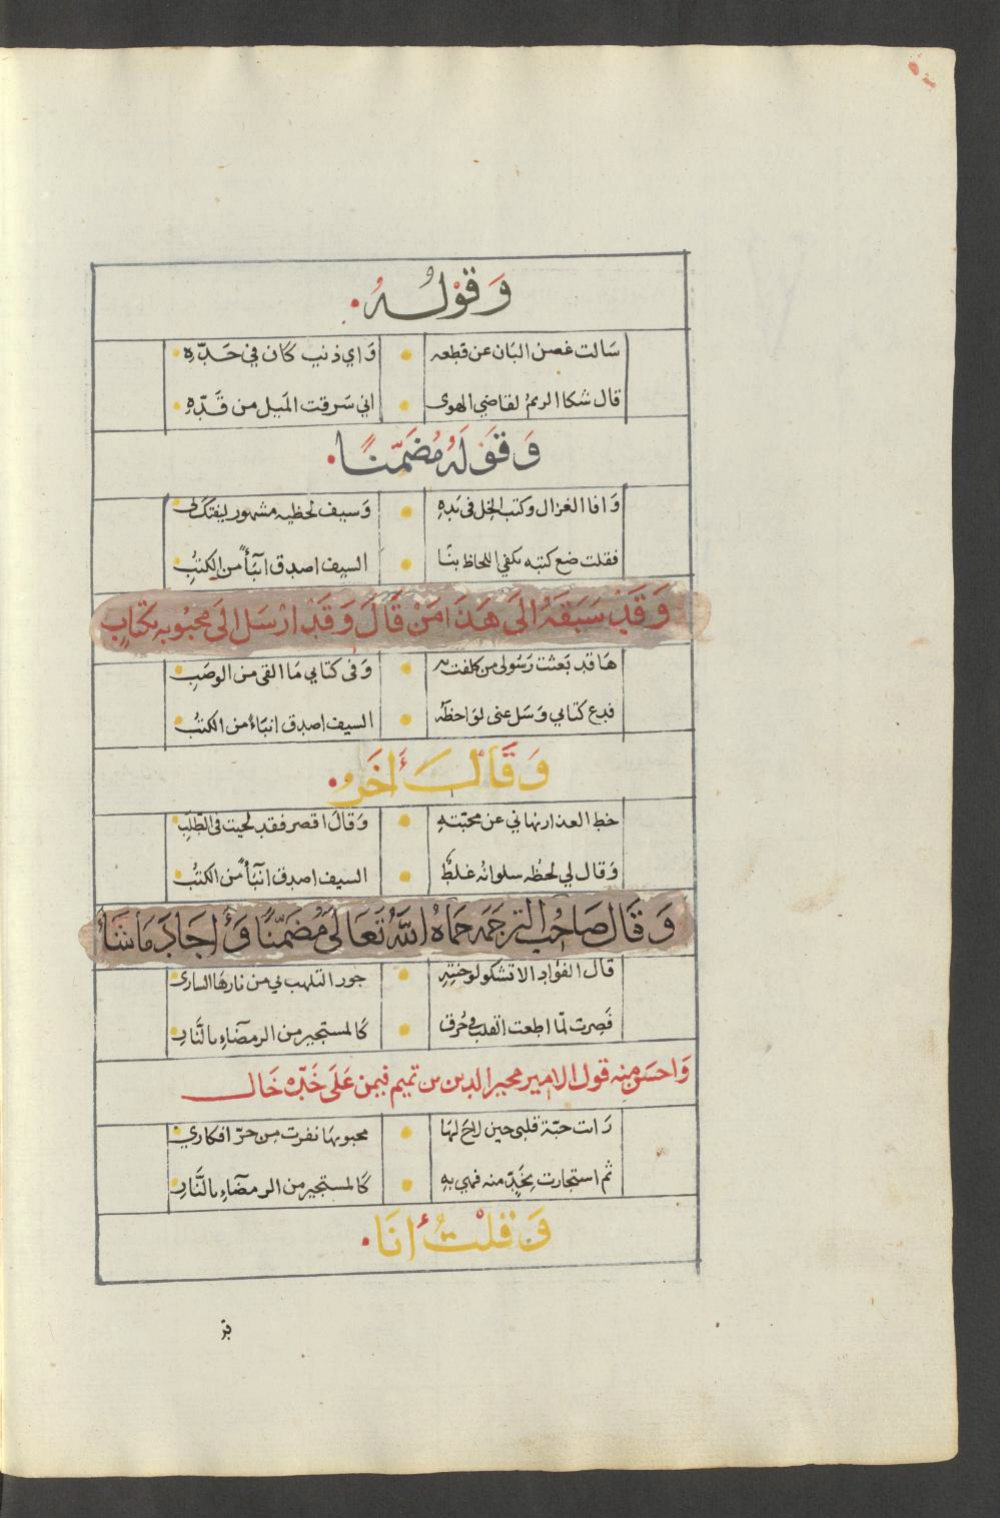 وَقَوْلُهُ
سَالت غصن البَان عن قطعه • وَاي ذنب كَان في حَدِّهِ
قال شكا الريمُ لقاضي الهوى • اني سَرقت الميل من قَدِّهِ
وَقَوْلَهُ مُضَمِّنًا
وَافا الغزال وكتب الخل في يَدِهِ • وَسيف لحظيه مشهور ليفتك بي
فقلت ضع كتبه تكفي اللحاظ بنَا • السيف اصدق انبَأً من الكتبِ
وَقَدْ سَبَقَهُ الَى هَذَا مَنْ قَالَ وَقَدْ ارْسَل الَى محبُوبِهِ بكتَابٍ
هَا قد بَعثت رَسُولي من كلفت به • وَفي كتابي مَا القى من الوصَبِ
فدع كتابي وَسَل عني لوَاحظَه • السيف اصدق انبَاءً من الكتبِ
وَقَالَ أَخَرُ
خط العذار نهاني عن محبّتهِ • وَقالَ اقصر فقد لحيت في الطلَبِ
وَقال لي لحظه سلوانه غلطٌ • السيف اصدق انبَأً من الكتبِ
وَقَالَ صَاحبُ التَرجَمَه حَمَاهُ اللهُ تَعَالَى مُضَمِّنًا وَأَجَادَ مَا شَاْ
قال الفؤاد الا تشكو لوجنتِهِ • جور التلهب بي من نارهَا السَارى
فَصرت لمّا اطعت القلب في حُرق • كَالمستجير من الرمضَاءِ بالنَّارِ
وَاحسَن منه قول الامير مجير الدين بن تميم فيمن عَلَى خَدّه خَال
رَات حبّة قلبي حين لاحَ لهَا • محبوبهَا نفرت من حرّ افكاري
ثم استجارت بِخَدٍّ منه فهي بهِ • كَالمستجير من الرمضَاءِ بالنَّارِ
وَقلْتُ أنَا